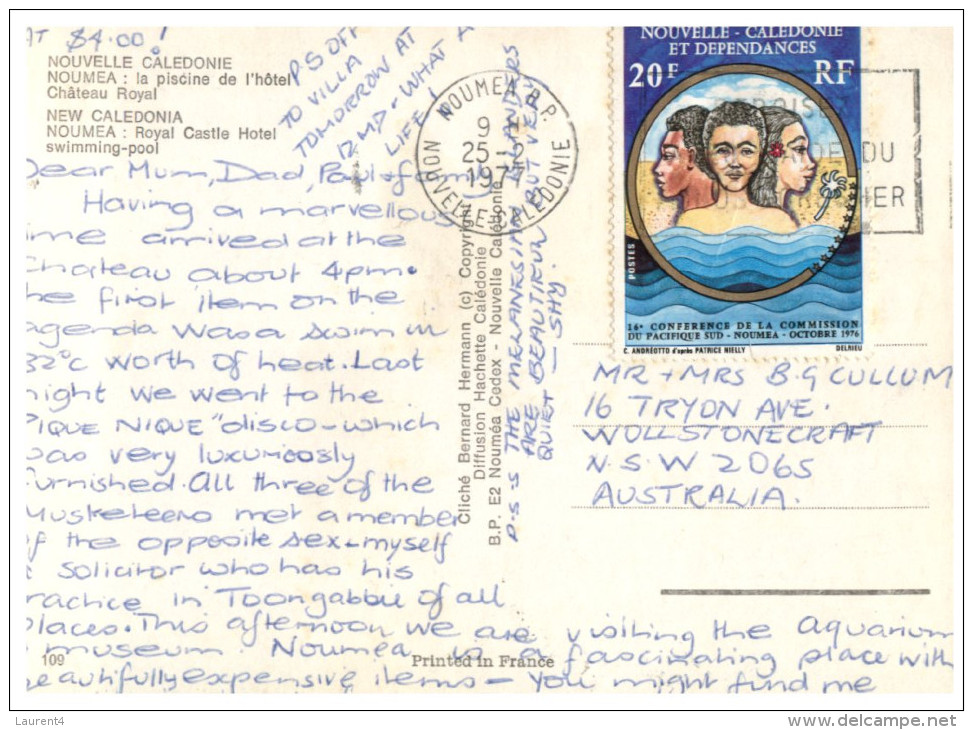 AT $4.00!
NOUVELLE CALEDONIE
NOUMEA : la piscine de l'hôtel
Château Royal
NEW CALEDONIA
NOUMEA : Royal Castle Hotel
swimming-pool
P S OFF
TO VILLA
TOMORROW AT
12.MD - WHAT A
LIFE!
Dear Mum, Dad, Paul & family
Having a marvellous
ime arrived at the
Chateau about 4pm.
he first item on the
agenda was a swim in
32°c worth of heat. Last
night we went to the
PIQUE NIQUE "disco - which
was very luxuriously
furnished. All three of the
Musketeers met a member
of the opposite sex - myself
a solicitor who has his
ractice in Toongabbie of all
places. This afternoon we are visiting the aquarium
museum Noumea is a fascinating place with
beautifully expensive items - you might find me
P.S S THE MELANESIAN ISLANDERS
ARE BEAUTIFUL BUT VERY
QUIET - SHY.
Cliché Bernard Hermann (c) Copyright
Diffusion Hachette Calédonie
B.P. E2 Nouméa Cedex - Nouvelle Calédonie
109
Printed in France
NOUMEA R.P.
9 H
25 - 2
197
NOUVELLE CALEDONIE
DU
IER
NOUVELLE - CALEDONIE
ET DEPENDANCES
20F RF
POSTES
16e CONFERENCE DE LA COMMISSION
DU PACIFIQUE SUD - NOUMEA - OCTOBRE 1976
C. ANDRÉOTTO d'après PATRICE NIELLY DELRIEU
MR + MRS B.G CULLUM
16 TRYON AVE.
WOLLSTONECRAFT
N.S.W 2065
AUSTRALIA.
Laurent4
delcampe.net